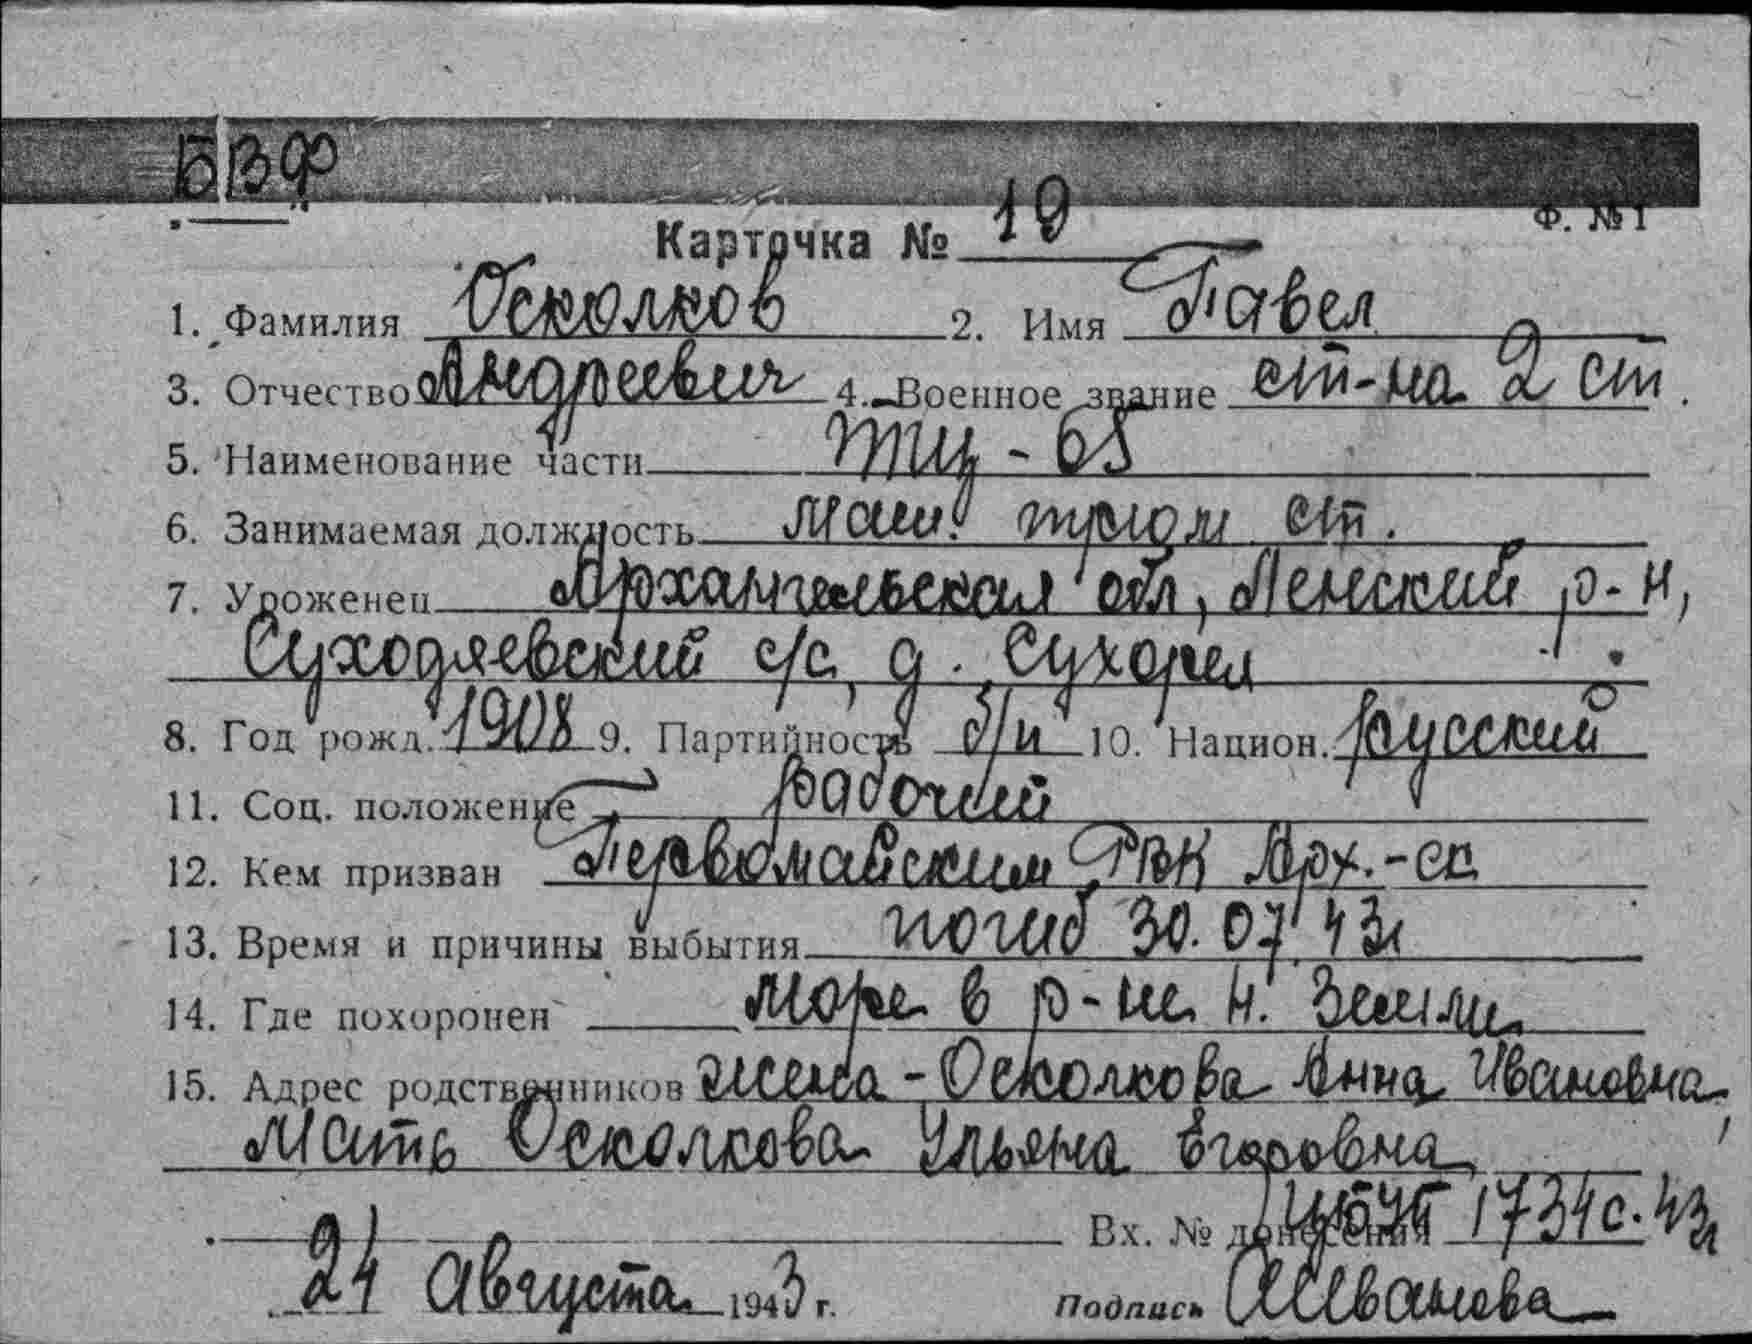 БВФ
Ф. № 1
Карточка № 19
1. Фамилия Осколков 2. Имя Павел
3. Отчество Андреевич 4. Военное звание ст-на 2 ст.
5. Наименование части ТТЩ - 65
6. Занимаемая должность маш. трюм ст.
7. Уроженец Архангельская обл, Ленский р-н,
с/с, д.
8. Год рожд. 1908 9. Партийность б/п 10. Национ. русский
11. Соц. положение рабочий
12. Кем призван Первомайским РВК Арх.-ск
13. Время и причины выбытия погиб 30.07.43г
14. Где похоронен море в р-не Н. Земли
15. Адрес родственников жена - Осколкова Анна Ивановна,
Мать Осколкова Ульяна Егоровна
Вх. № донесения 1734с. 43г
24 Августа 1943 г. Подпись